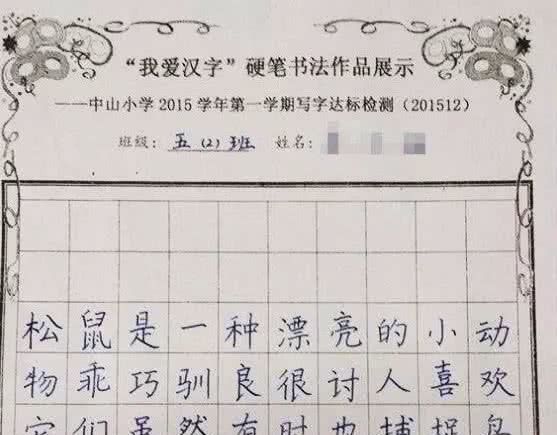 “我爱汉字”硬笔书法作品展示
——中山小学2015学年第一学期写字达标检测（201512）
班级：五（2）班 姓名：
松鼠是一种漂亮的小动
物乖巧驯良很讨人喜欢
它们虽然有时也捕捉鸟